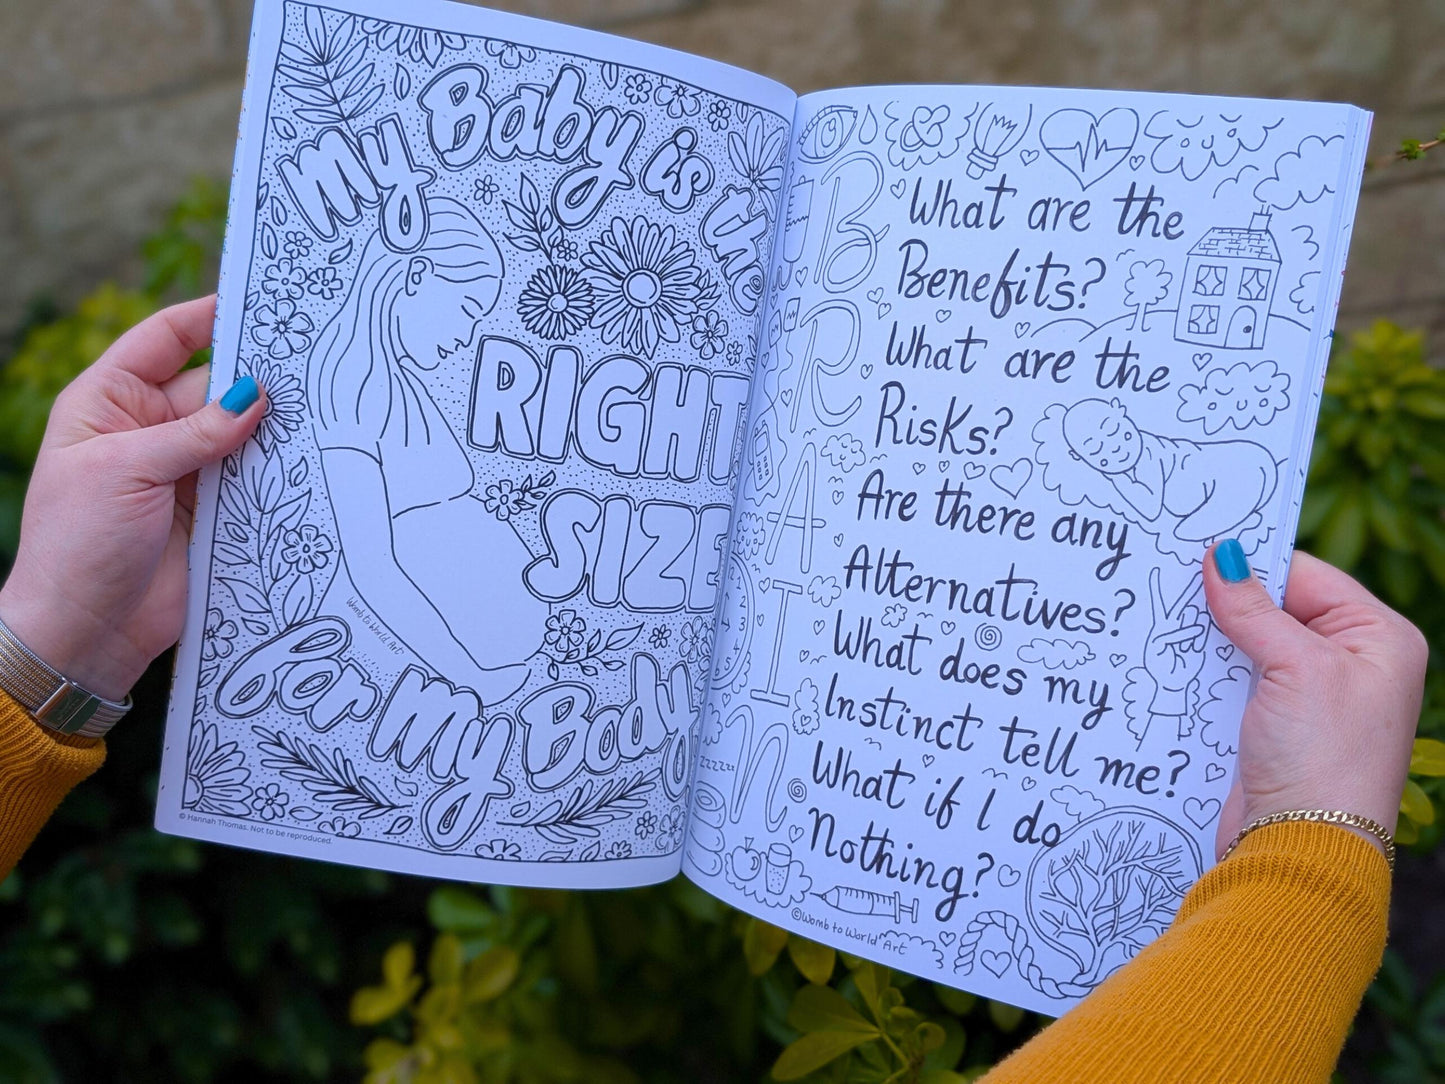 My Baby is the
RIGHT
SIZE
for My Body
Womb to World Art
© Hannah Thomas. Not to be reproduced.
B
R
A
I
n
What are the
Benefits?
What are the
Risks?
Are there any
Alternatives?
What does my
Instinct tell me?
What if I do
Nothing?
zzzzzz
©Womb to World Art